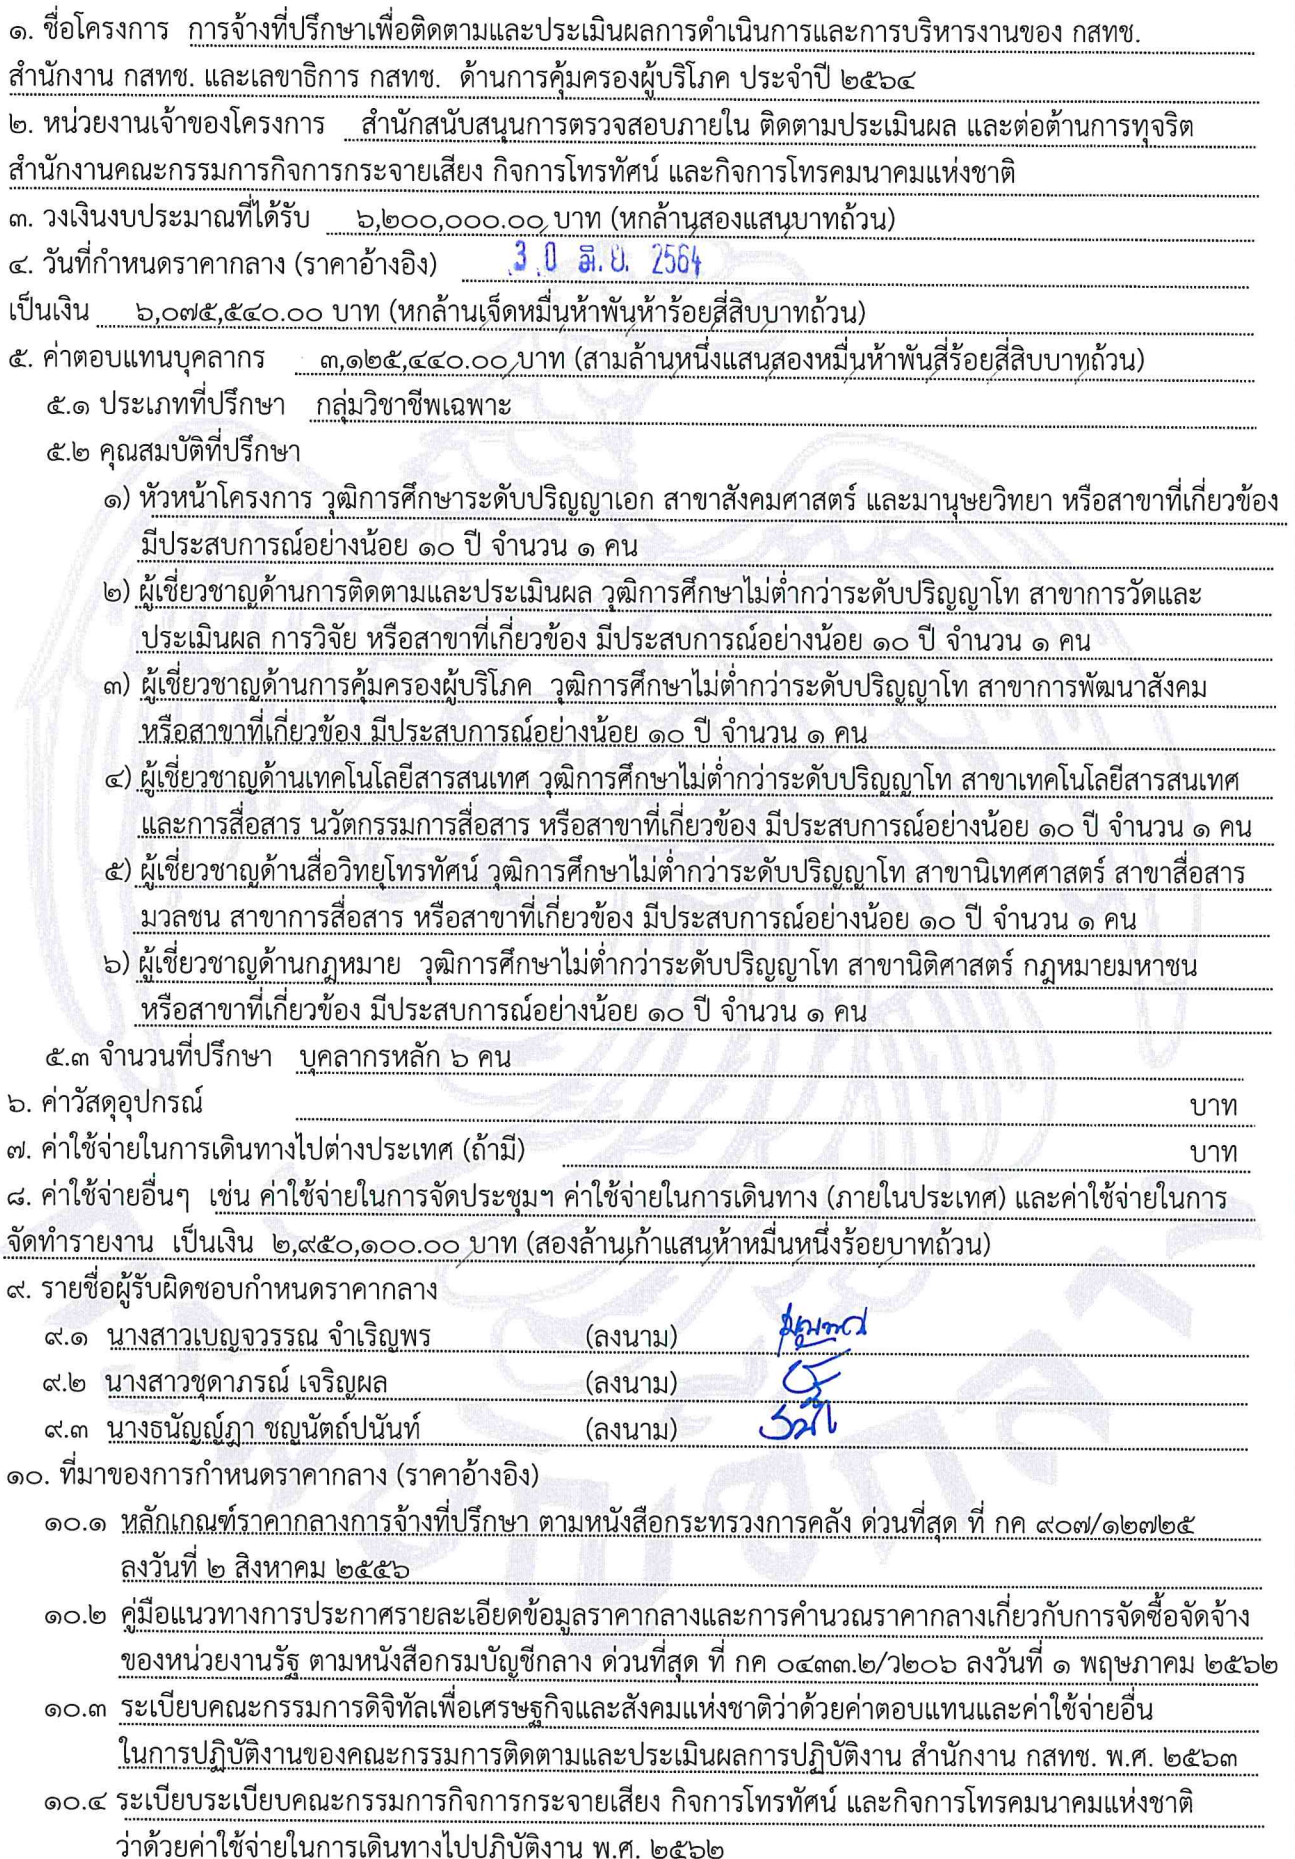 ๑. ชื่อโครงการ การจ้างที่ปรึกษาเพื่อติดตามและประเมินผลการดำเนินการและการบริหารงานของ กสทช.
สำนักงาน กสทช. และเลขาธิการ กสทช. ด้านการคุ้มครองผู้บริโภค ประจำปี ๒๕๖๔
๒. หน่วยงานเจ้าของโครงการ สำนักสนับสนุนการตรวจสอบภายใน ติดตามประเมินผล และต่อต้านการทุจริต
สำนักงานคณะกรรมการกิจการกระจายเสียง กิจการโทรทัศน์ และกิจการโทรคมนาคมแห่งชาติ
๓. วงเงินงบประมาณที่ได้รับ ๖,๒๐๐,๐๐๐.๐๐ บาท (หกล้านสองแสนบาทถ้วน)
๔. วันที่กำหนดราคากลาง (ราคาอ้างอิง) 30 มิ.ย. 2564
เป็นเงิน ๖,๐๗๕,๕๔๐.๐๐ บาท (หกล้านเจ็ดหมื่นห้าพันห้าร้อยสี่สิบบาทถ้วน)
๕. ค่าตอบแทนบุคลากร ๓,๑๒๕,๔๔๐.๐๐ บาท (สามล้านหนึ่งแสนสองหมื่นห้าพันสี่ร้อยสี่สิบบาทถ้วน)
๕.๑ ประเภทที่ปรึกษา กลุ่มวิชาชีพเฉพาะ
๕.๒ คุณสมบัติที่ปรึกษา
๑) หัวหน้าโครงการ วุฒิการศึกษาระดับปริญญาเอก สาขาสังคมศาสตร์ และมานุษยวิทยา หรือสาขาที่เกี่ยวข้อง
มีประสบการณ์อย่างน้อย ๑๐ ปี จำนวน ๑ คน
๒) ผู้เชี่ยวชาญด้านการติดตามและประเมินผล วุฒิการศึกษาไม่ต่ำกว่าระดับปริญญาโท สาขาการวัดและ
ประเมินผล การวิจัย หรือสาขาที่เกี่ยวข้อง มีประสบการณ์อย่างน้อย ๑๐ ปี จำนวน ๑ คน
๓) ผู้เชี่ยวชาญด้านการคุ้มครองผู้บริโภค วุฒิการศึกษาไม่ต่ำกว่าระดับปริญญาโท สาขาการพัฒนาสังคม
หรือสาขาที่เกี่ยวข้อง มีประสบการณ์อย่างน้อย ๑๐ ปี จำนวน ๑ คน
๔) ผู้เชี่ยวชาญด้านเทคโนโลยีสารสนเทศ วุฒิการศึกษาไม่ต่ำกว่าระดับปริญญาโท สาขาเทคโนโลยีสารสนเทศ
และการสื่อสาร นวัตกรรมการสื่อสาร หรือสาขาที่เกี่ยวข้อง มีประสบการณ์อย่างน้อย ๑๐ ปี จำนวน ๑ คน
๕) ผู้เชี่ยวชาญด้านสื่อวิทยุโทรทัศน์ วุฒิการศึกษาไม่ต่ำกว่าระดับปริญญาโท สาขานิเทศศาสตร์ สาขาสื่อสาร
มวลชน สาขาการสื่อสาร หรือสาขาที่เกี่ยวข้อง มีประสบการณ์อย่างน้อย ๑๐ ปี จำนวน ๑ คน
๖) ผู้เชี่ยวชาญด้านกฎหมาย วุฒิการศึกษาไม่ต่ำกว่าระดับปริญญาโท สาขานิติศาสตร์ กฎหมายมหาชน
หรือสาขาที่เกี่ยวข้อง มีประสบการณ์อย่างน้อย ๑๐ ปี จำนวน ๑ คน
๕.๓ จำนวนที่ปรึกษา บุคลากรหลัก ๖ คน
๖. ค่าวัสดุอุปกรณ์ บาท
๗. ค่าใช้จ่ายในการเดินทางไปต่างประเทศ (ถ้ามี) บาท
๘. ค่าใช้จ่ายอื่นๆ เช่น ค่าใช้จ่ายในการจัดประชุมฯ ค่าใช้จ่ายในการเดินทาง (ภายในประเทศ) และค่าใช้จ่ายในการ
จัดทำรายงาน เป็นเงิน ๒,๙๕๐,๑๐๐.๐๐ บาท (สองล้านเก้าแสนห้าหมื่นหนึ่งร้อยบาทถ้วน)
๙. รายชื่อผู้รับผิดชอบกำหนดราคากลาง
๙.๑ นางสาวเบญจวรรณ จำเริญพร (ลงนาม)
๙.๒ นางสาวชุดาภรณ์ เจริญผล (ลงนาม)
๙.๓ นางธนัญญ์ฎา ชญนัตถ์ปนันท์ (ลงนาม)
๑๐. ที่มาของการกำหนดราคากลาง (ราคาอ้างอิง)
๑๐.๑ หลักเกณฑ์ราคากลางการจ้างที่ปรึกษา ตามหนังสือกระทรวงการคลัง ด่วนที่สุด ที่ กค ๙๐๗/๑๒๗๒๕
ลงวันที่ ๒ สิงหาคม ๒๕๕๖
๑๐.๒ คู่มือแนวทางการประกาศรายละเอียดข้อมูลราคากลางและการคำนวณราคากลางเกี่ยวกับการจัดซื้อจัดจ้าง
ของหน่วยงานรัฐ ตามหนังสือกรมบัญชีกลาง ด่วนที่สุด ที่ กค ๐๔๓๓.๒/ว๒๐๖ ลงวันที่ ๑ พฤษภาคม ๒๕๖๒
๑๐.๓ ระเบียบคณะกรรมการดิจิทัลเพื่อเศรษฐกิจและสังคมแห่งชาติว่าด้วยค่าตอบแทนและค่าใช้จ่ายอื่น
ในการปฏิบัติงานของคณะกรรมการติดตามและประเมินผลการปฏิบัติงาน สำนักงาน กสทช. พ.ศ. ๒๕๖๓
๑๐.๔ ระเบียบระเบียบคณะกรรมการกิจการกระจายเสียง กิจการโทรทัศน์ และกิจการโทรคมนาคมแห่งชาติ
ว่าด้วยค่าใช้จ่ายในการเดินทางไปปฏิบัติงาน พ.ศ. ๒๕๖๒